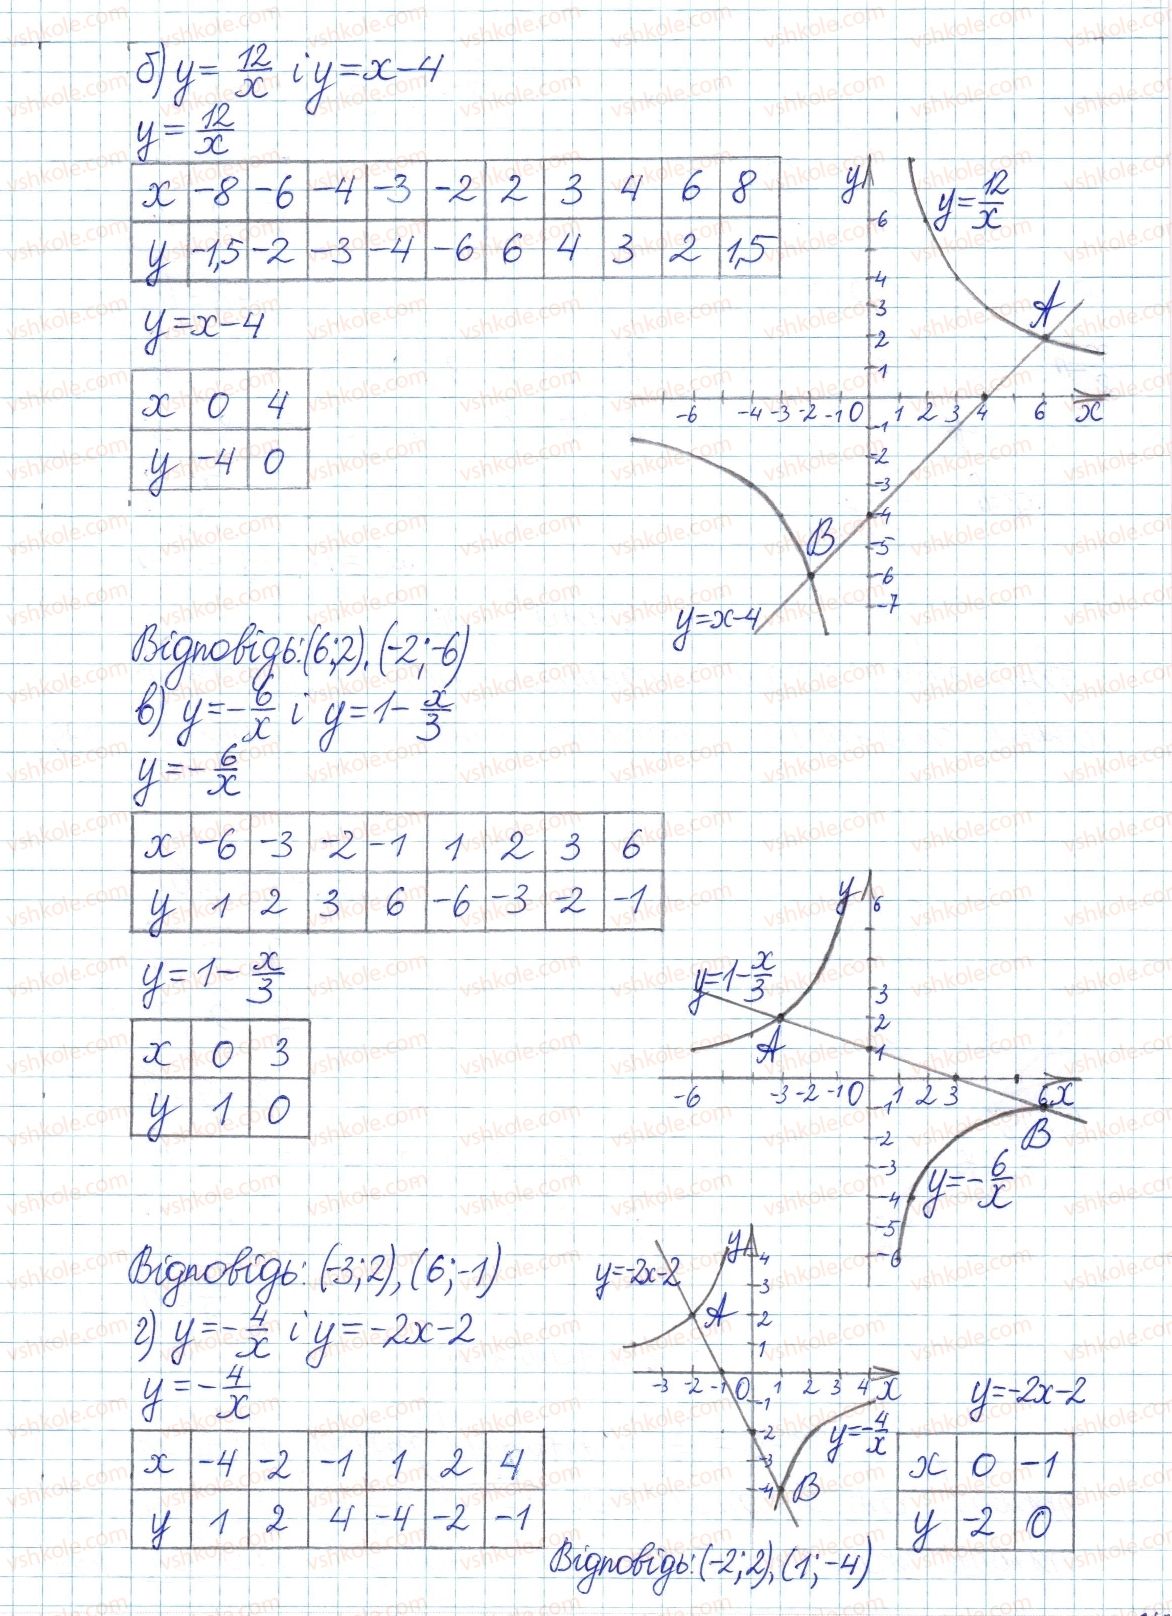 б) y = 12/x і y = x – 4
y = 12/x
x –8 –6 –4 –3 –2 2 3 4 6 8
y –1,5 –2 –3 –4 –6 6 4 3 2 1,5
y = x – 4
x 0 4
y –4 0
y
y = 12/x
A
6
4
3
2
1
-6 -4 -3 -2 -1 0 1 2 3 4 6 x
-1
-2
-3
-4
-5
-6
-7
B
y = x – 4
Відповідь: (6; 2), (–2; –6)
в) y = – 6/x і y = 1 – x/3
y = – 6/x
x –6 –3 –2 –1 1 2 3 6
y 1 2 3 6 –6 –3 –2 –1
y = 1 – x/3
x 0 3
y 1 0
y
6
y = 1 – x/3
3
2
1
A
-6 -3 -2 -1 0 1 2 3 6 x
-1
-2
-3
-4
-5
-6
B
y = – 6/x
Відповідь: (–3; 2), (6; –1)
г) y = – 4/x і y = –2x – 2
y = – 4/x
x –4 –2 –1 1 2 4
y 1 2 4 –4 –2 –1
y
y = –2x – 2
A
4
3
2
1
-3 -2 -1 0 1 2 3 4 x
-1
-2
-3
-4
y = – 4/x
B
y = –2x – 2
x 0 –1
y –2 0
Відповідь: (–2; 2), (1; –4)
vshkole.com